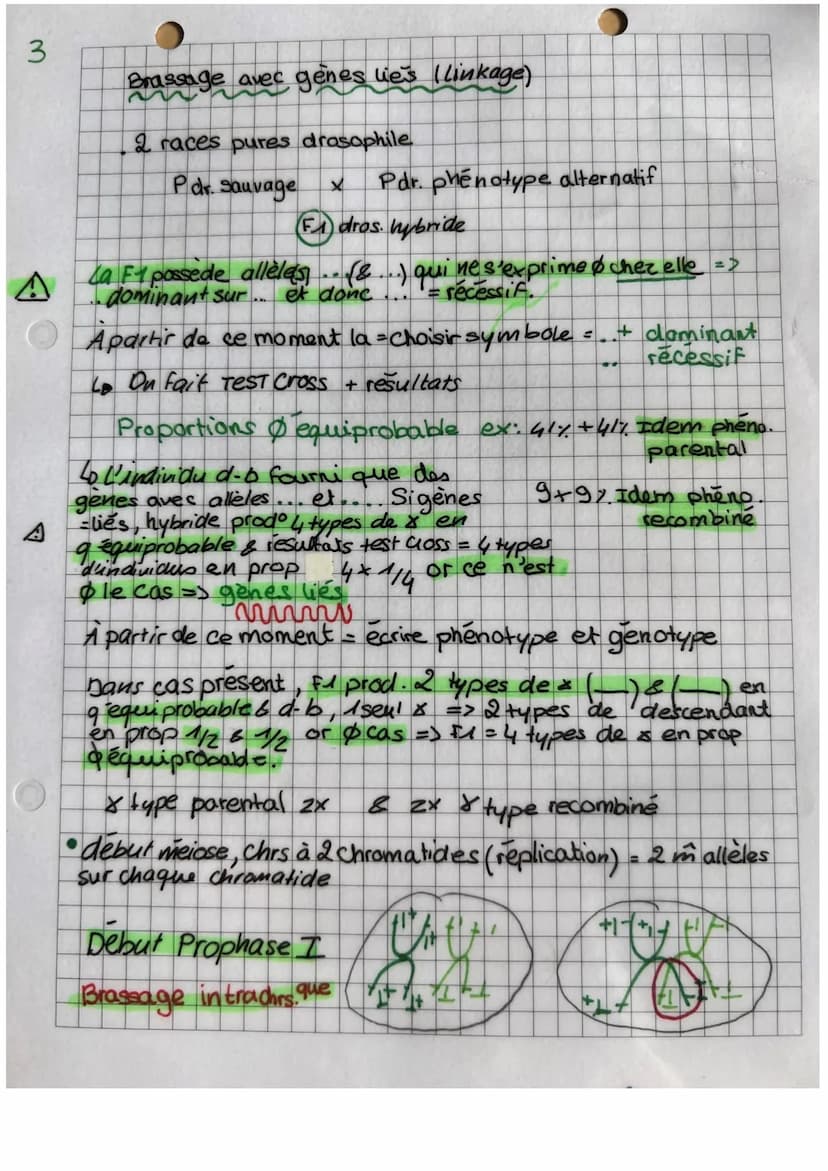 3
Brassage avec gènes liés (linkage)
. 2 races pures drosophile
P dr. sauvage x P dr. phénotype alternatif
F1 dros. hybride
La F1 possède allèles ... (& ...) qui ne s'exprime Ø chez elle =>
... dominant sur ... et donc ... = récessif.
À partir de ce moment la = choisir symbole = ..+ dominant
.. récessif
↳ On fait TEST Cross + résultats
Proportions Ø équiprobable ex: 41% + 41% Idem phéno.
parental
↳ L'individu d-b fourni que des
gènes avec allèles ... et .... Si gènes
9+9% Idem phéno.
recombiné
=liés, hybride prod° 4 types de γ en
q équiprobable & résultats test cross = 4 types
d'individus en prop 4 x 1/4 or ce n'est
Ø le cas => gènes liés
À partir de ce moment = écrire phénotype et génotype
Dans cas présent, F1 prod. 2 types de γ (__) & (__) en
q équiprobable & d-b, 1 seul γ => 2 types de descendant
en prop 1/2 & 1/2 or Ø cas => F1 = 4 types de γ en prop
Ø équiprobable.
γ type parental 2x & 2x γ type recombiné
• début meiose, chrs à 2 chromatides (réplication) = 2 m̂ allèles
sur chaque chromatide
Début Prophase I
Brassage intrachrs.que